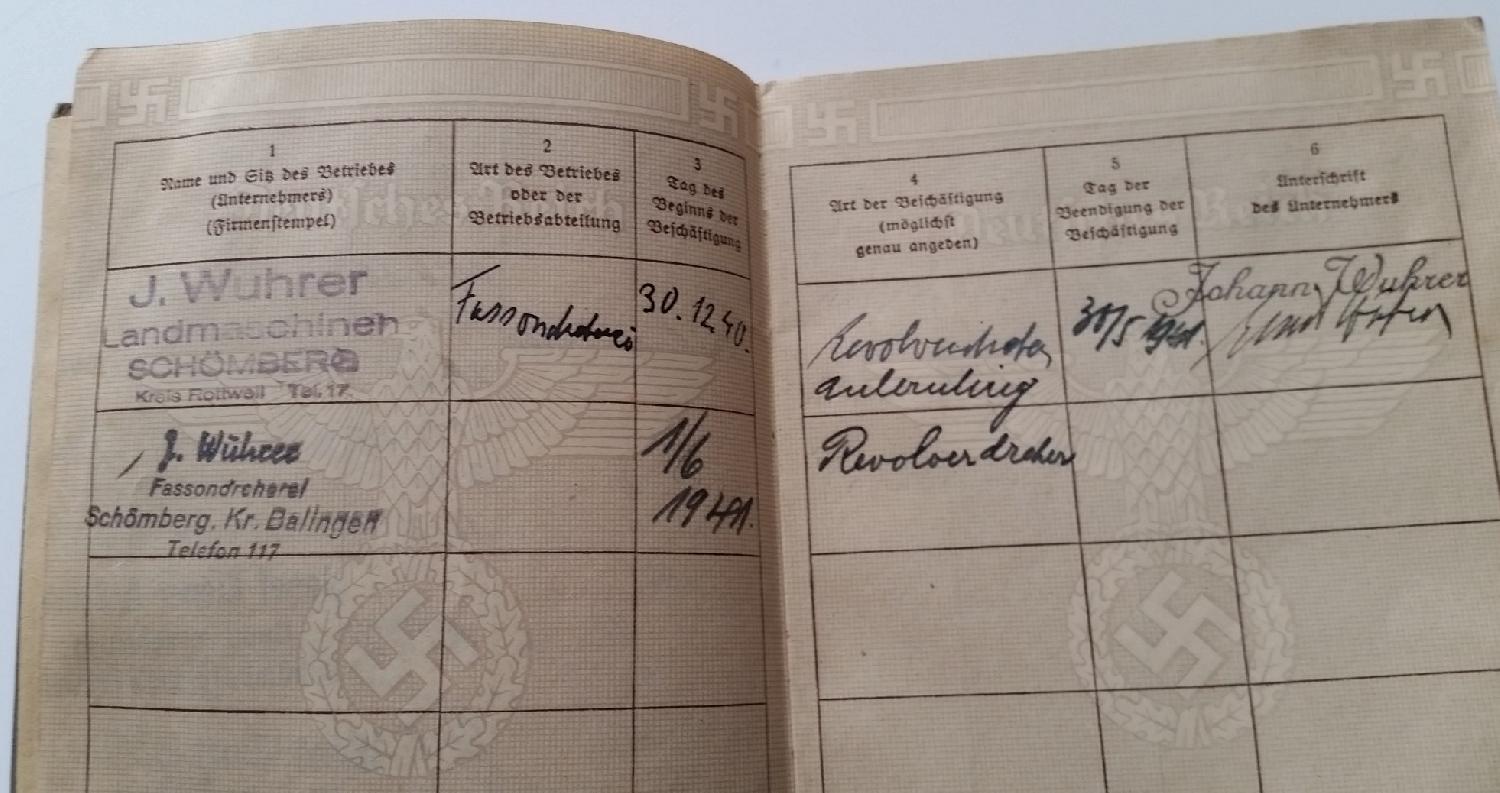 1
Name und Sitz des Betriebes
(Unternehmers)
(Firmenstempel)
2
Art des Betriebes
oder der
Betriebsabteilung
3
Tag des
Beginns der
Beschäftigung
J. Wuhrer
Landmaschinen
SCHÖMBERG
Kreis Rottweil Tel. 17.
Fassondreherei
30.12.40.
J. Wührer
Fassondreherei
Schömberg, Kr. Balingen
Telefon 117
1/6
1941.
4
Art der Beschäftigung
(möglichst
genau angeben)
5
Tag der
Beendigung der
Beschäftigung
6
Unterschrift
des Unternehmers
Revolverdreher
31/5 1941.
Johann Wuhrer
Revolverdreher